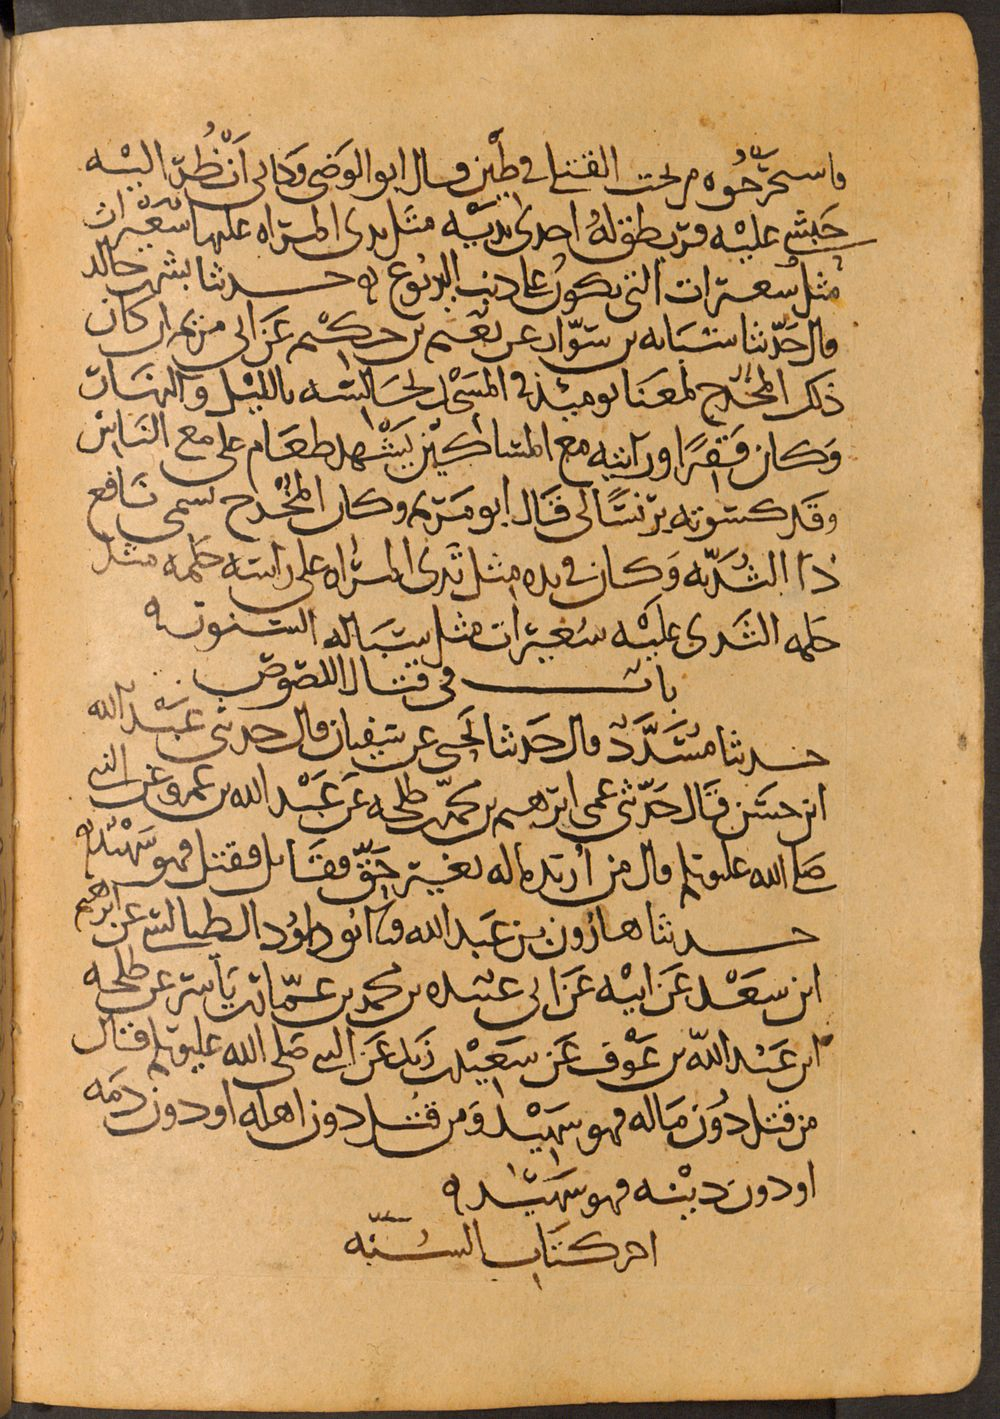 فاستخرجوه من تحت القتلى في طين قال ابو الوضي فكاني أَنْظُر اليْه
حَبَشي عليْه قريطق لهُ احدى ثدييْه مثل ثدى المرَاه عليها شُعَيْرات
مثل شعيرات التي تكون على ذنب اليربُوع ه حدثنا بشر بن خالد
قال حَدّثنا شبَابه بن سَوّار عن نعَيم بن حكيْم عَن ابي مريم ان كان
ذلك المخْدج لمعَنا يومئذ في المَسْجد نجَالسُه بالليْل والنهَار
وَكان فَقيرًا ورايته مع المسَاكيْن يَشْهد طعَام علي مع النَاس
وقد كسَوته برنسًا لي قَال ابو مَريم وكان المخْدج يسمى نَافع
ذا الثُديّه وَكان في يده مثل ثَدى المرَاه على رَاسه حَلمه مثل
حلمه الثَدى عَليْه شُعيرات مثل سبَاله السنور ه
باب في قتال اللصُوص
حدثنا مُسَدّد قال حَدثنا يَحيى عن سُفيان قال حدثني عَبْد الله
ابن حسَن قَال حَدّثني عمي ابرهيم بن محمّد بن طلحه عَن عَبْد الله بن عمرو عَن النبي
صَلى الله عليه وسلم قال من أُريد ماله بغَير حَقّ فقَاتل فقتل فهو شَهيْد ه
حدثنا هَارُون بن عَبد الله نا ابو داوُد الطيالسي عن ابرهيم
ابن سَعْد عَن ابيْه عَن ابي عبَيده بن محمد بن عَمّار بن يَاسر عن طلحه
ابن عَبْد اللّه بن عَوْف عَن سَعيْد بن زَيد عَن النبي صَلى الله عليه وسلم قَال
من قتل دُوَن مَاله فهو شَهيْد وَمن قُتل دون اهله او دون دَمه
او دون ديْنه فهو شَهيْد ه
اخر كتَاب السُنّه